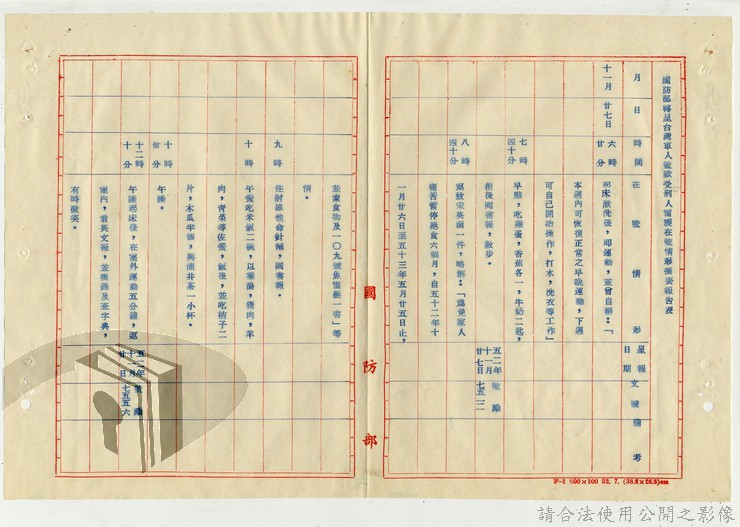 國防部轉呈台灣軍人監獄受刑人雷震在監情形摘要報告表
月 日 時間 在監情形 呈報日期 文號 備考
十一月 廿七日 六時廿分 起床漱洗後,即運動,並曾自稱:「
本週內可恢復正常之早晚運動,下週
可自己開始操作,打水,洗衣等工作」
七時四十分 早點,吃雞蛋,香蕉各一,牛奶二瓶,
稍後閱書報,散步。
五二年十一月廿七日 監勵 七五二
八時四十分 寫致宋英函一件,略稱:「為免家人
痛苦暫停絕食六個月,自五十二年十
一月廿六日至五十三年五月廿五日止,
國防部
並索食物及一〇九號魚雷艇一書」等
情。
九時 注射維他命針劑,閱書報。
十時 午餐吃米飯二碗,以雞湯,豬肉,羊
肉,青菜等佐餐,飯後,並吃桔子二
片,木瓜半個,與龍井茶一小杯。
十時 分 午睡。
十二時十分 午睡起床後,在室外運動五分鐘,返
室內,看英文報,並摘錄及查字典,
五二年十一月廿日 監勵 七五五六
有時微笑。
F-1 500×100 52. 7. (38.5×26.5)cm
請合法使用公開之影像